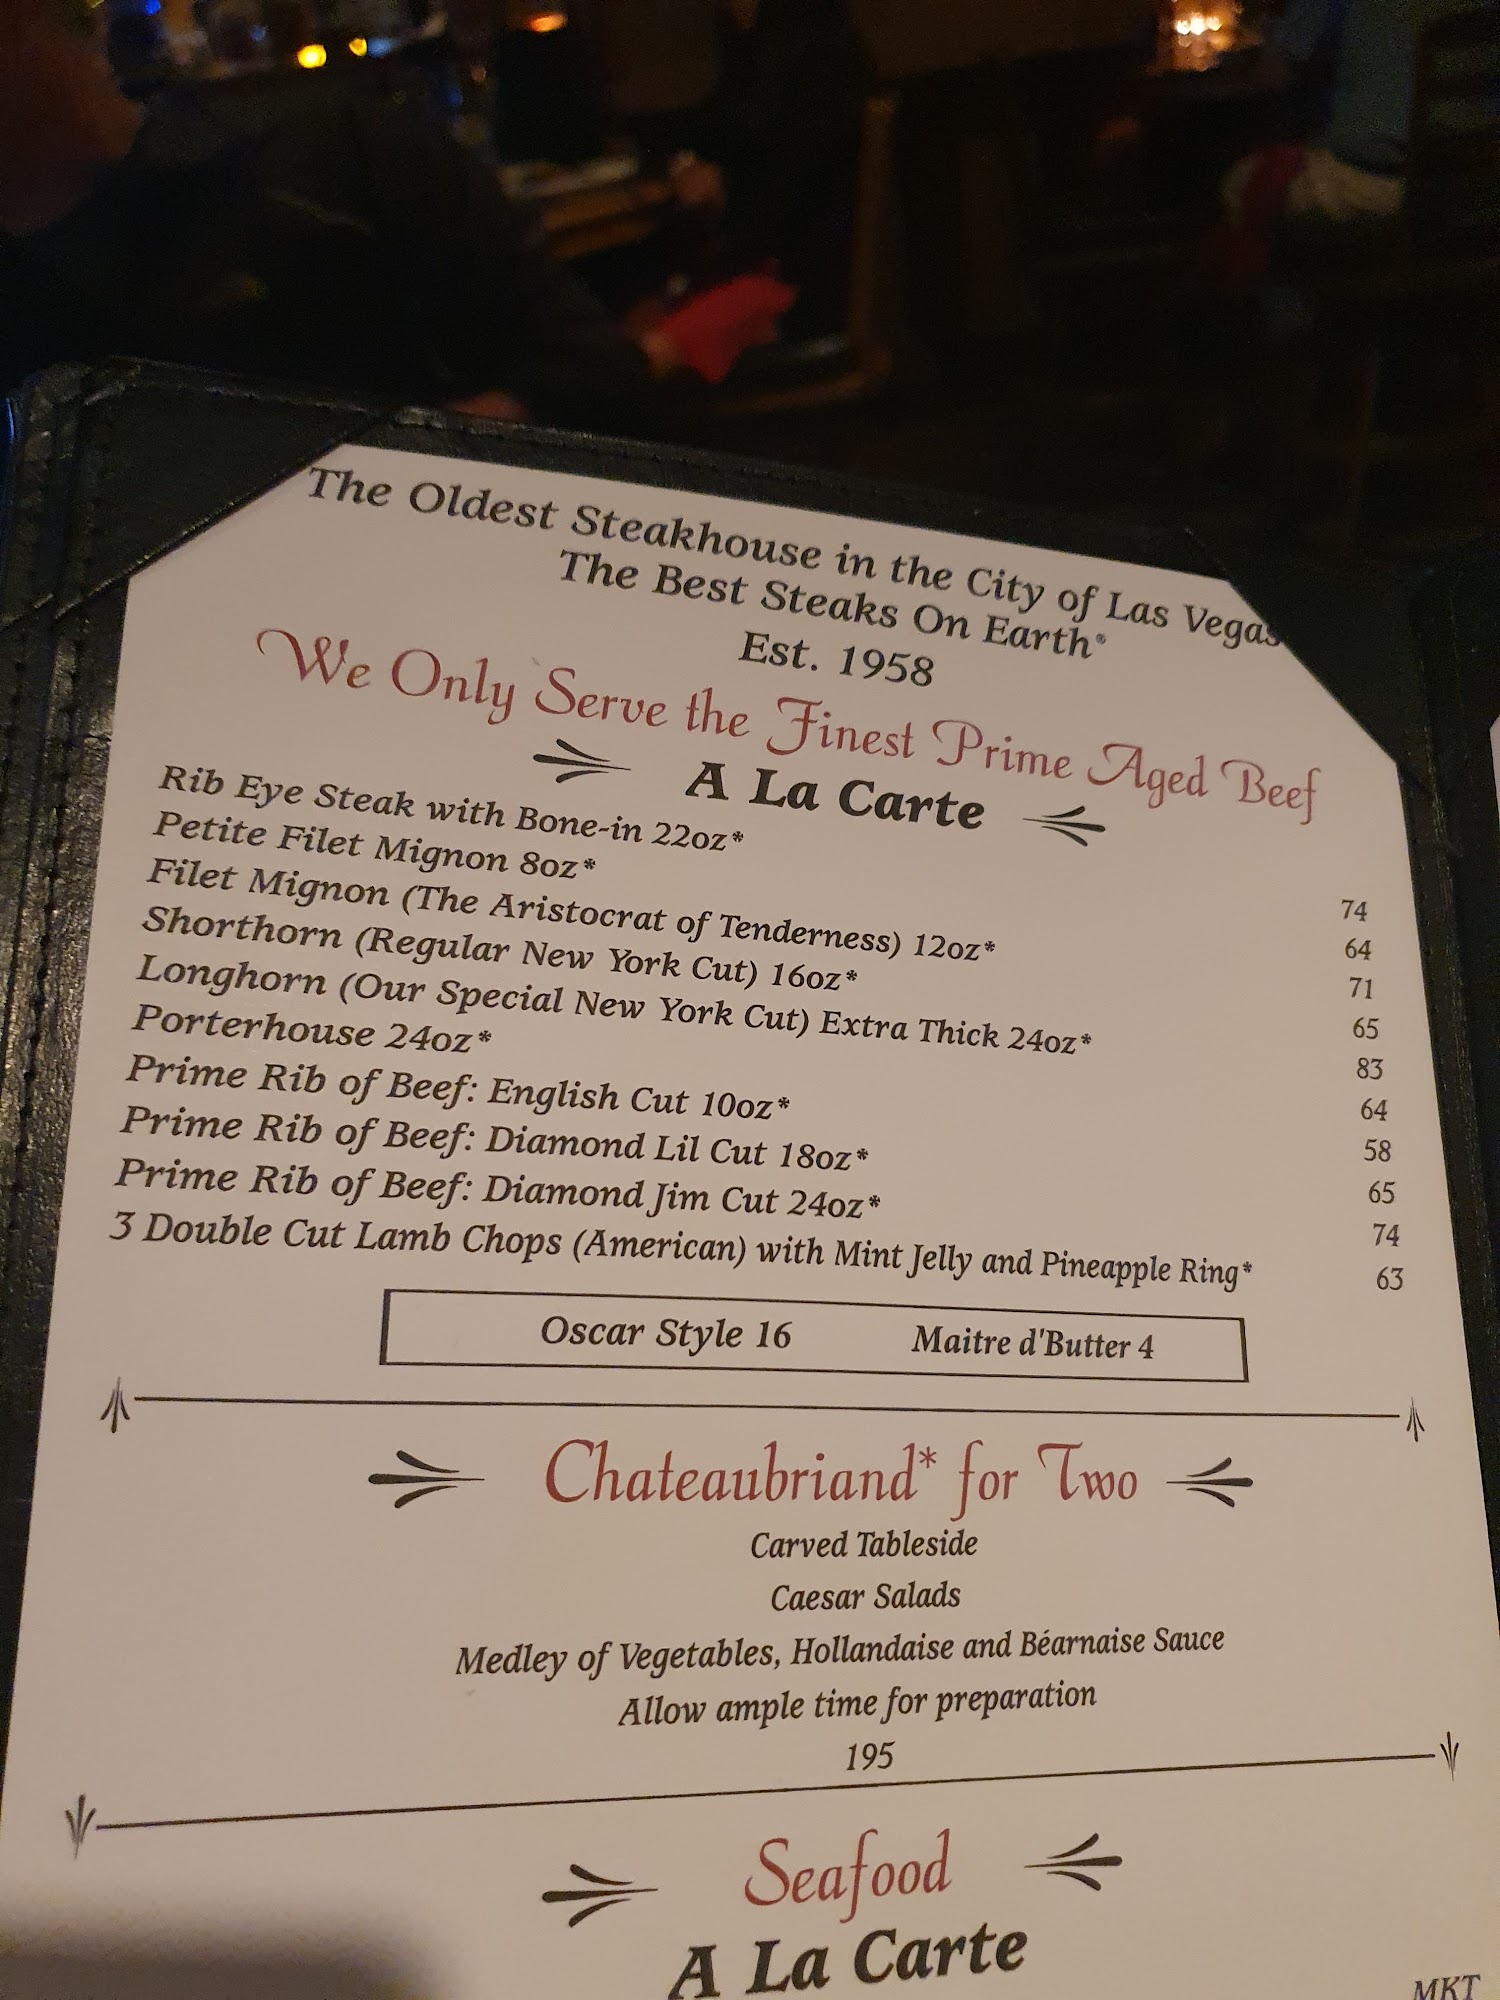 The Oldest Steakhouse in the City of Las Vegas
The Best Steaks On Earth®
Est. 1958
We Only Serve the Finest Prime Aged Beef
A La Carte
Rib Eye Steak with Bone-in 22oz* 74
Petite Filet Mignon 8oz* 64
Filet Mignon (The Aristocrat of Tenderness) 12oz* 71
Shorthorn (Regular New York Cut) 16oz* 65
Longhorn (Our Special New York Cut) Extra Thick 24oz* 83
Porterhouse 24oz* 64
Prime Rib of Beef: English Cut 10oz* 58
Prime Rib of Beef: Diamond Lil Cut 18oz* 65
Prime Rib of Beef: Diamond Jim Cut 24oz* 74
3 Double Cut Lamb Chops (American) with Mint Jelly and Pineapple Ring* 63
Oscar Style 16 Maitre d'Butter 4
Chateaubriand* for Two
Carved Tableside
Caesar Salads
Medley of Vegetables, Hollandaise and Béarnaise Sauce
Allow ample time for preparation
195
Seafood
A La Carte
MKT